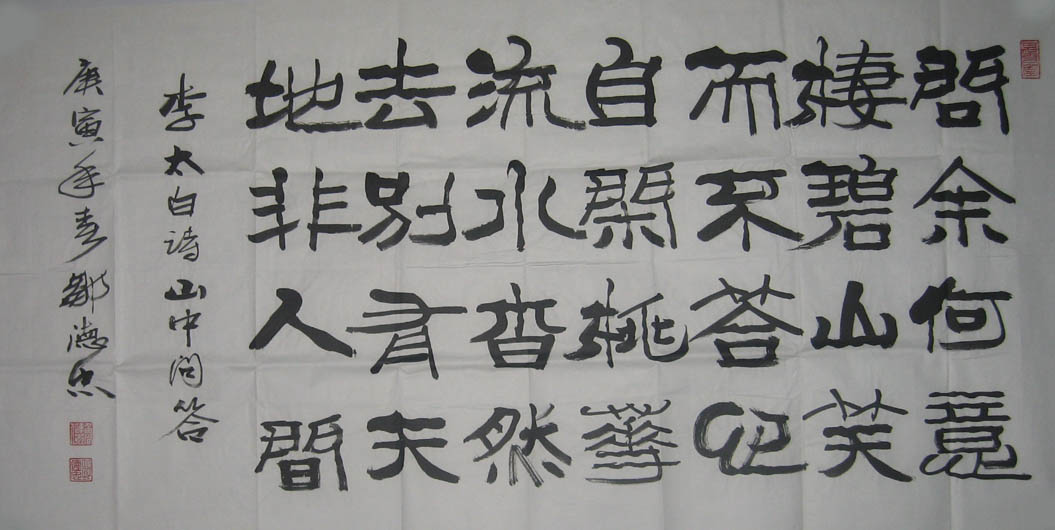 問余何意
棲碧山笑
而不答心
自閑桃華
流水杳然
去別有天
地非人間
李太白诗山中问答
庚寅年春鄒德忠